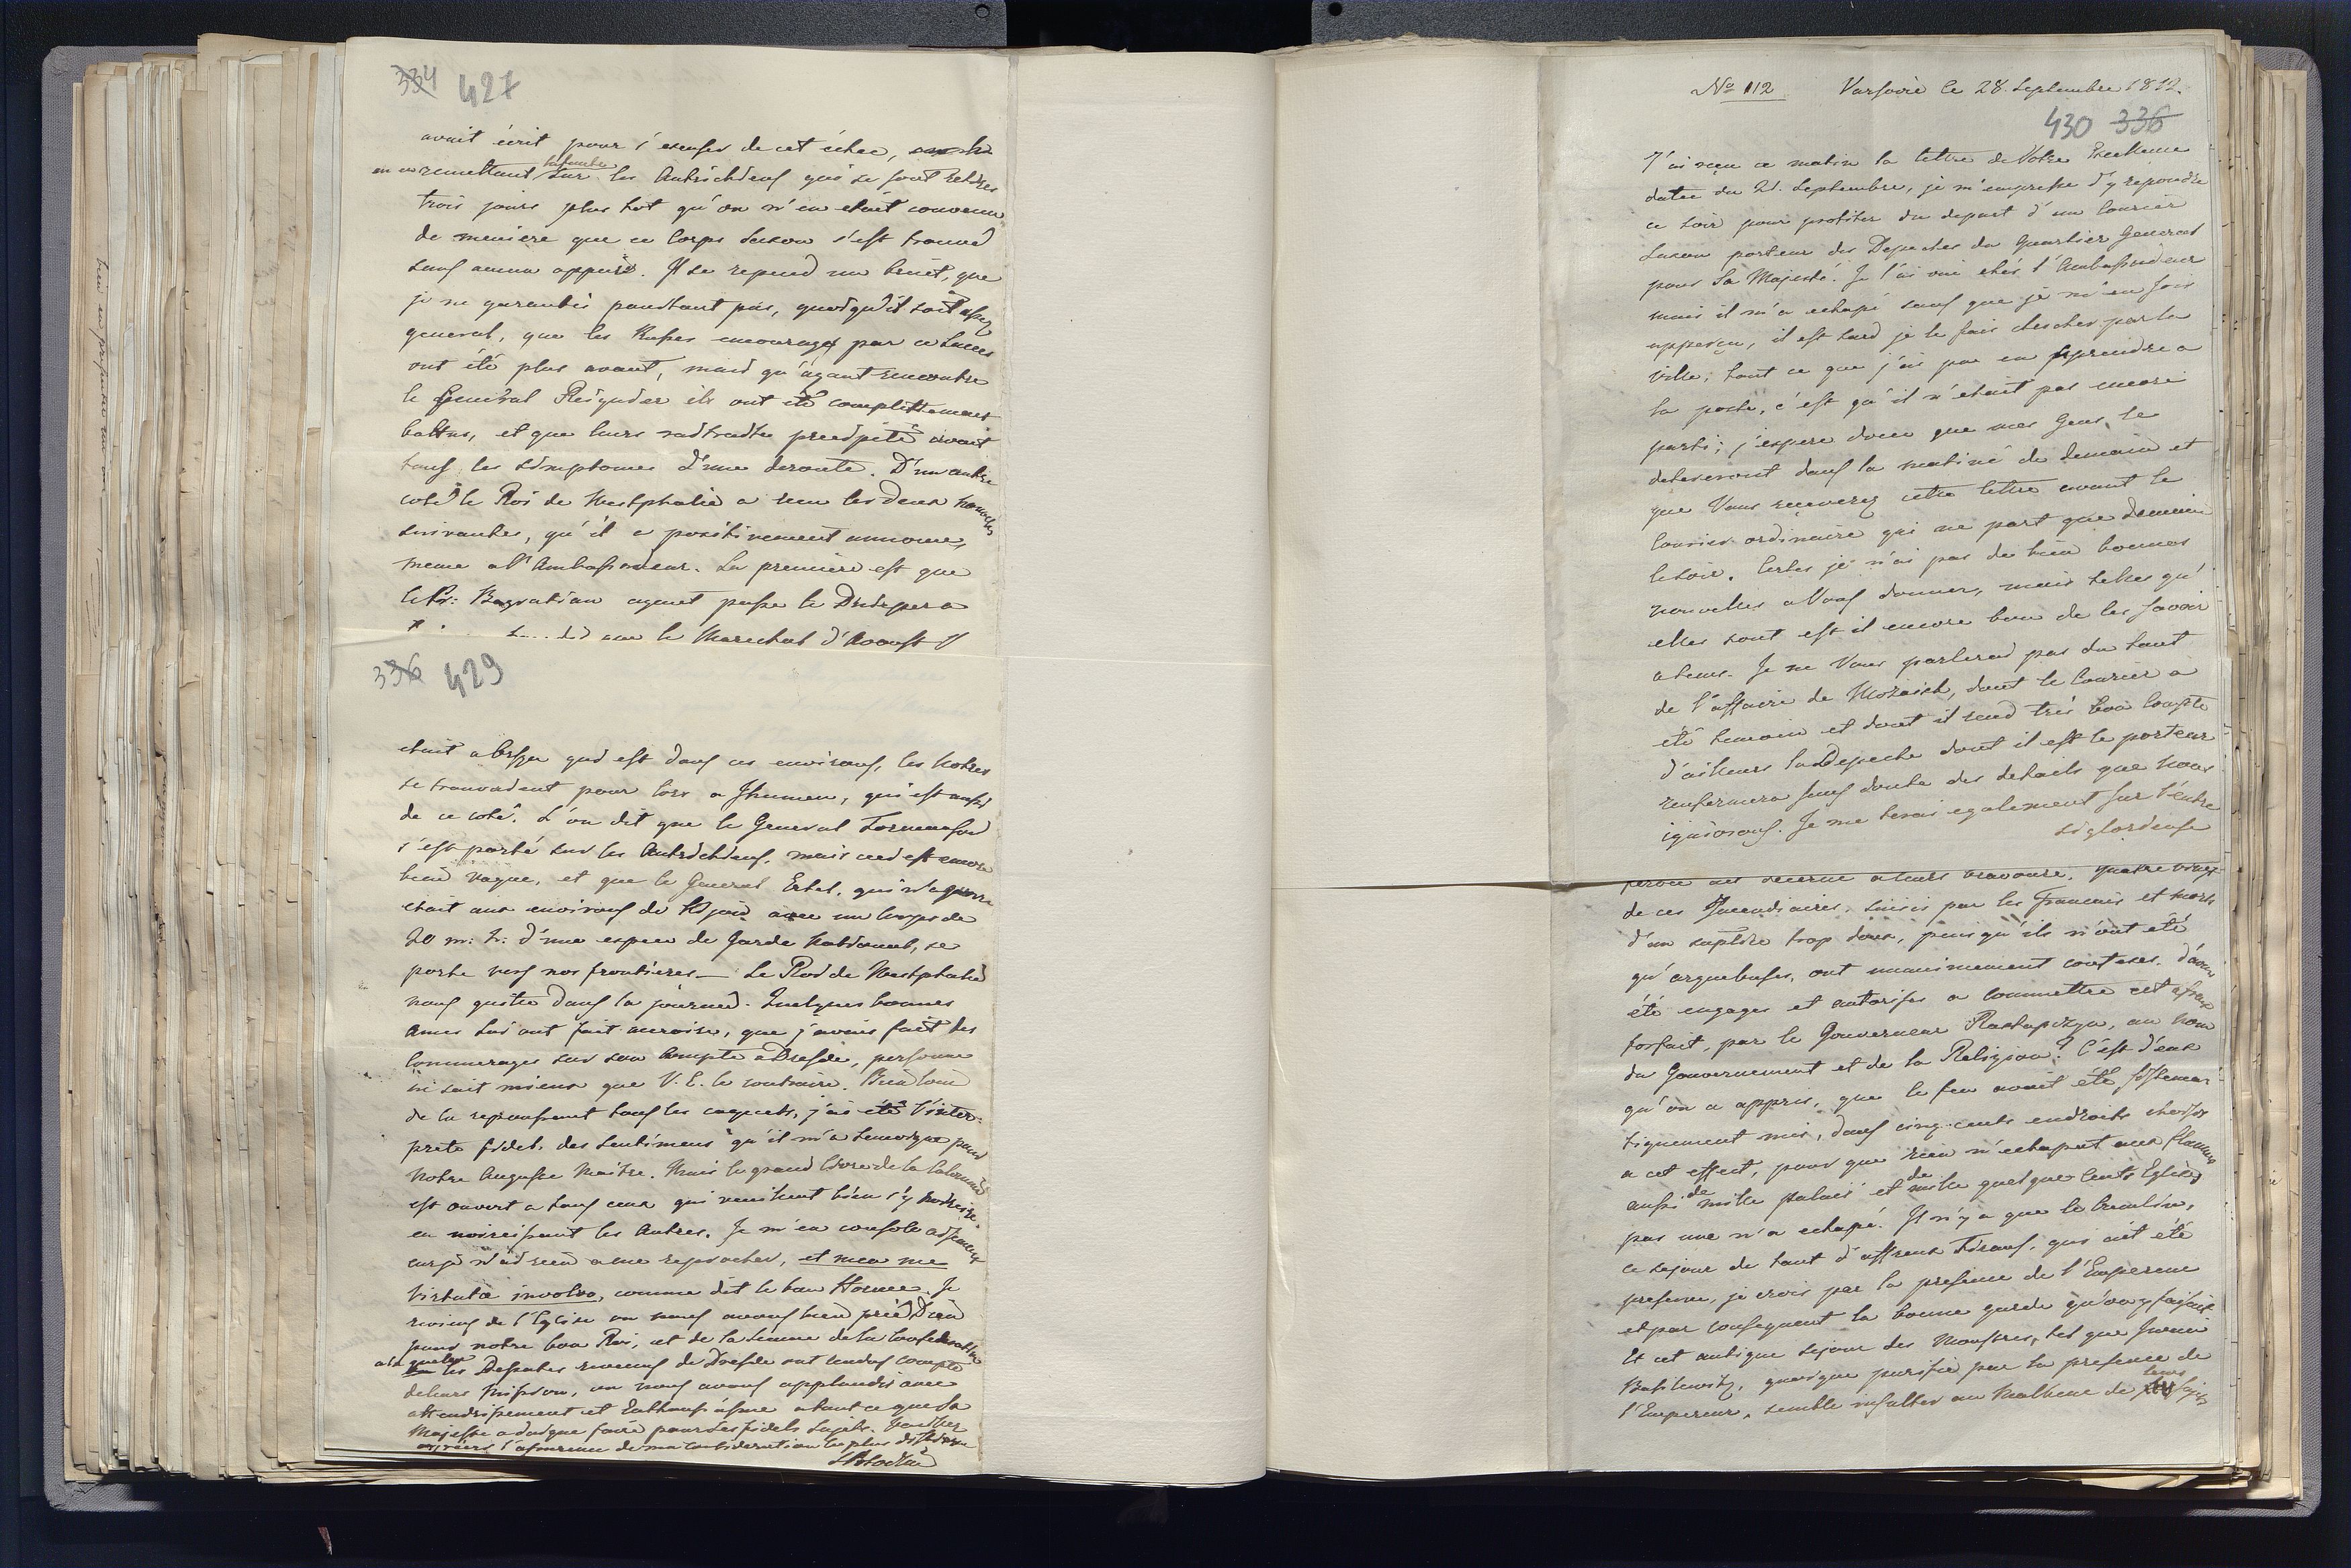 334 427
avait écrit pour s'excuser de cet échec,
en se remettant sur les Autrichiens qui se sont retirés
trois jours plus tot qu'on n'en etait convenu
de meniere que ce Corps Saxon s'est trouvé
sans aucun appuis. Il se repend un bruit, que
je ne garantis pourtant pas, quoiqu'il soit assez
general, que les Russes encouragés par ce succes
ont été plus avant, mais qu'ayant rencontre
le General Reignier ils ont été complettement
battus, et que leurs retraite precipité avait
tous les simptomes d'une deroute. D'un autre
coté le Roi de Westphalie a reçu les deux nouvelles
suivantes, qu'il a positivement annonce,
meme a l'Ambassadeur. La premiere est que
le Pr: Bagration ayant passe le Dnieper a
avec le Marechal d'Avoust
336 429
etait a qui est dans ces environs, les notres
se trouvaient pour lors a Ihumen, qui est aussi
de ce coté. L'on dit que le General Tormansow
s'est porté sur les Autrichiens, mais ceci est encore
bien vague, et que le General Ertel, qui
etait aux environs de Kijow avec un Corps de
20 m: h: d'une espece de Garde Nationale, se
porte vers nos frontieres — Le Roi de Westphalie
nous quitte dans la journé. Quelques bonnes
Ames lui ont fait accroire, que j'avais fait des
Commerages sur son Compte a Dresde, personne
ne sait mieux que V. E. le contraire. Bien loin
de la repoussant tous les caquets, j'ai été l'inter-
prete fidel, des sentimens qu'il m'a temoigne pour
Notre Auguste Maitre. Mais le grand Livre de la Calomnie
est ouvert a tous ceux qui veuillent bien s'y inscrire
en noircissant les Autres. Je m'en console aisement
car je n'ai rien a me reprocher, et mea me
Virtute involvo, comme dit le bon Horace. Je
reviens de l'Eglise ou nous avons bien prié Dieu
pour notre bon Roi, et de la Seance de la Confederation
a la quelle les Deputes revenus de Dresde ont rendus compte
de leurs Mission, ou nous avons applaudis avec
attendrissement et Enthousiasme a tant ce que Sa
Majeste a daigne faire pour ses fidels Sujets. Veuillez
agréer l'assurance de ma consideration la plus distingue
No 112 Varsovie le 28 Septembre 1812.
430 336
J'ai reçu ce matin la lettre de Votre Excellence
datee du 21. Septembre, je m'empresse d'y repondre
ce soir pour profiter du depart d'un Courier
Saxon porteur des Depeches du Quartier General
pour Sa Majesté. Je l'ai vu chés l'Ambassadeur
mais il m'a echapé sans que je m'en sois
apperçu, il est tard je le fais chercher par la
ville; tout ce que j'ai pu en apprendre a
la poste, c'est qu'il n'etait pas encore
parti; j'espere donc que mes Gens, le
deterreront dans la matiné de demain et
que Vous receverez cette lettre avant le
Courier ordinaire qui ne part que demain
le soir. Certes je n'ai pas de bien bonnes
nouvelles a Vous donner, mais telles qu'
elles sont est il encore bon de les savoir
a tems. Je ne Vous parlerai pas du tout
de l'affaire de Mozaisk, dont le Courier a
été temoin et dont il rend très bon Compte
d'ailleurs la Depeche dont il est le porteur
renfermera sans doute des details que nous
ignorons. Je me terai egalement sur l'entre
si glorieuse
a leurs bravoure. quatre vingt
de ces Incendiaires, saisis par les Francais et morts
d'un suplice trop doux, puisqu'ils n'ont été
qu'arquebuses, ont unanimement confesses, d'avoir
été engages et autorises a commettre cet affreux
forfait, par le Gouverneur Rastapczyn, au nom
du Gouvernement et de la Religion. C'est d'eux
qu'on a appris, que le feu avait été, sistema-
tiquement mis, dans cinq cents endroits choisis
a cet effect, pour que rien n'echapat aux flammes
aussi de mille palais et de mille quelque cents Eglises
pas une n'a echapé. Il n'y a que le Cremlin,
ce sejour de tant d'affreux Tirans, qui ait été
preserve, je crois par la presence de l'Empereur
et par consequent la bonne garde qu'on y faisait
Et cet antique sejour des Monstres, tel que Iwan
Basilewitz, quoique purifié par la presence de
l'Empereur, semble insulter au Malheur de leurs sujets